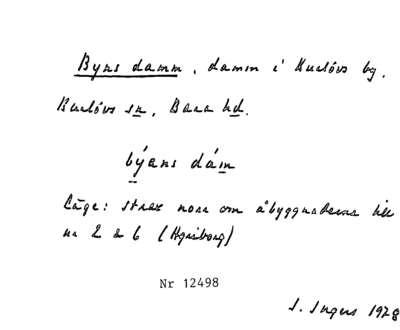 Byns damm, damm i Burlövs by.
Burlövs sn, Bara hd.
býans dám
Läge: strax norr om åbyggnaderna till
nr 2 & 6 (Hgniborg)
Nr 12498
I. Ingers 1928